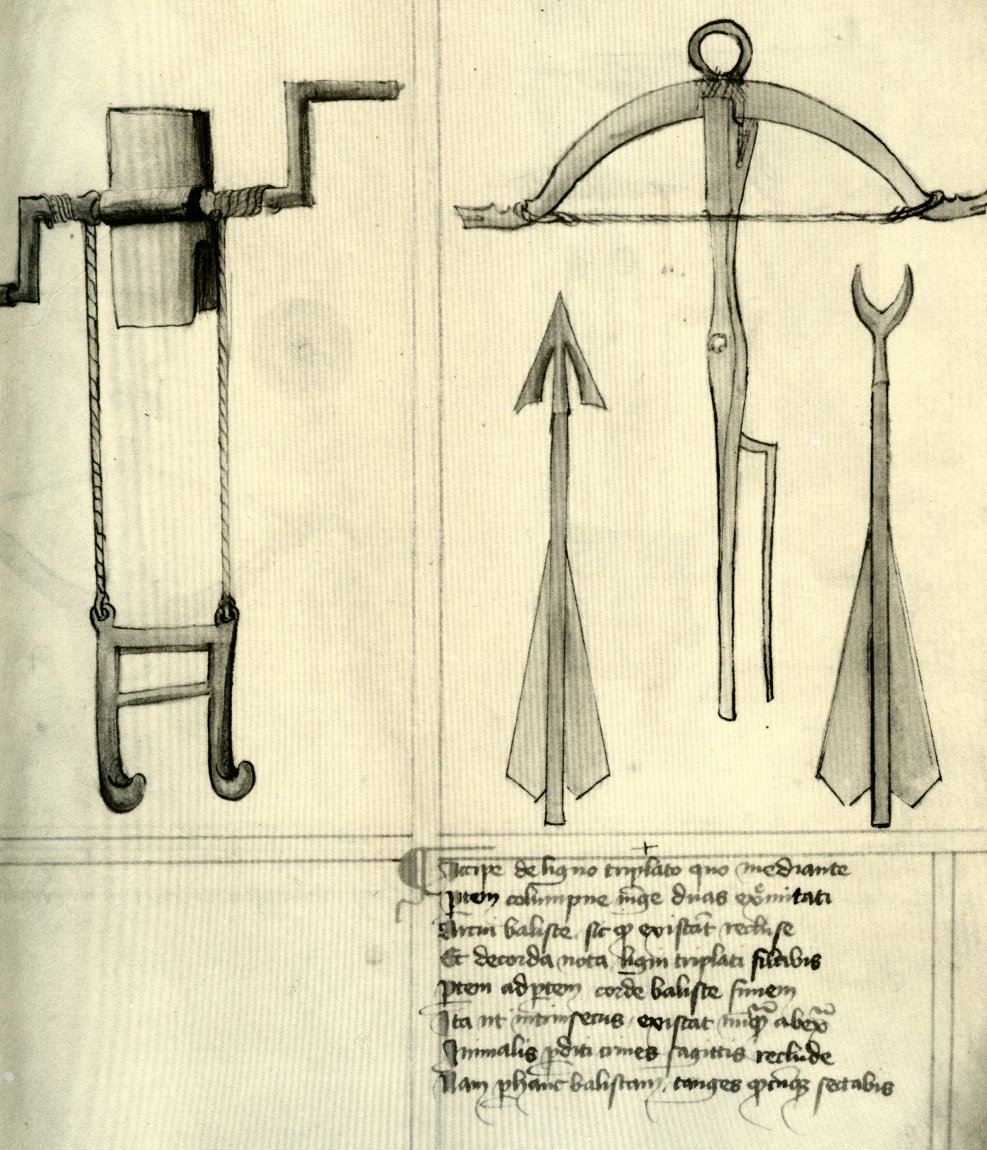 Accipe de ligno triplato quo mediante
ptem columpne iūge duas exͦmitati
Arcui baliste sic ꝙ existāt recluse
Et decorda nota ligni triplati
ptem ad ptem corde baliste funem
Ita ut intrinsecus existat
Animalis crines sagittis reclude
Nam balistam tanges sectabis